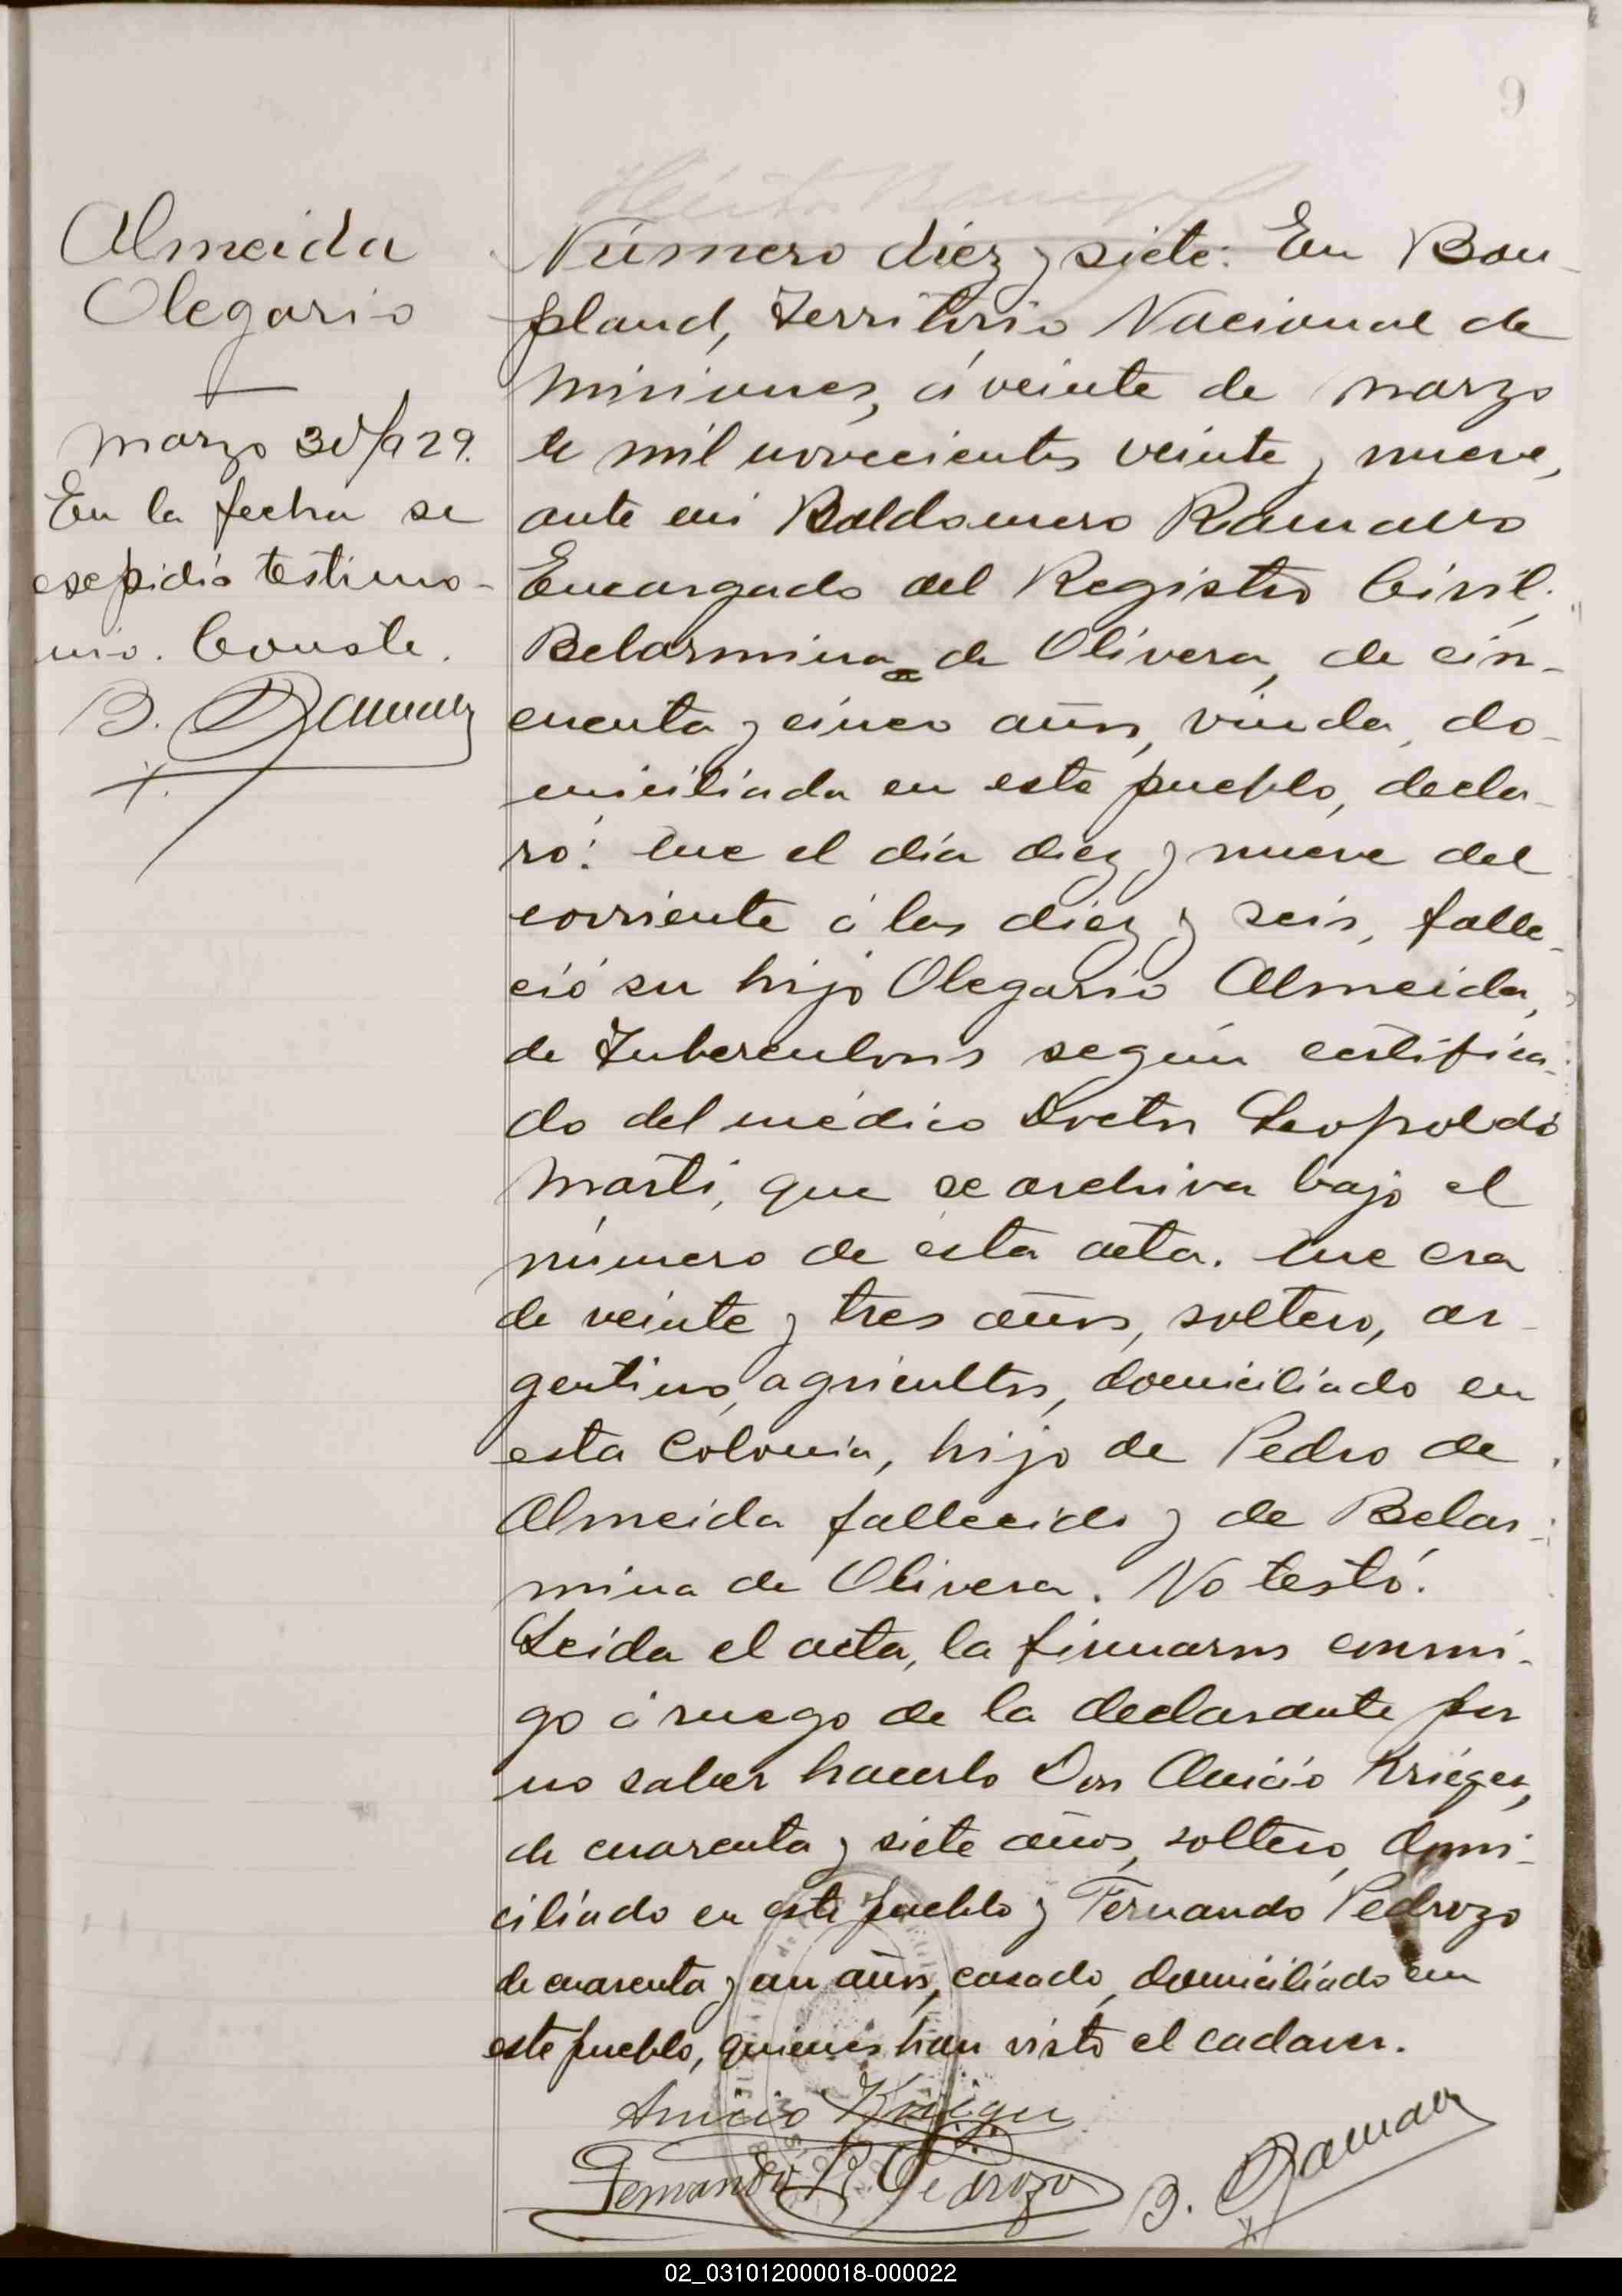 9
Almeida
Olegario
Marzo 30/929.
En la fecha se
expidió testimo-
nio. Conste.
B. Ramaro
Número diez y siete: En Bon-
pland, Territorio Nacional de
Misiones, á veinte de Marzo
de mil novecientos veinte y nueve,
ante mi Baldomero Ramaro
Encargado del Registro Civil;
Belarmina de Olivera, de cin-
cuenta y cinco años, viuda, do-
miciliada en este pueblo, decla-
ró: Que el día diez y nueve del
corriente á las diez y seis, falle-
ció su hijo Olegario Almeida,
de Tuberculosis según certifica-
do del médico Doctor Leopoldo
Marti, que se archiva bajo el
número de ésta acta. Que era
de veinte y tres años, soltero, ar-
gentino, agricultor, domiciliado en
esta Colonia, hijo de Pedro de
Almeida fallecido y de Belar-
mina de Olivera. No testó.
Leida el acta, la firmaron conmi-
go á ruego de la declarante por
no saber hacerlo Don Anicio Krieger,
de cuarenta y siete años, soltero, domi-
ciliado en este pueblo y Fernando Pedrozo
de cuarenta y un años, casado, domiciliado en
este pueblo, quienes han visto el cadaver.
Anicio Krieger
Fernando R Pedrozo
B. Ramaro
02_031012000018-000022